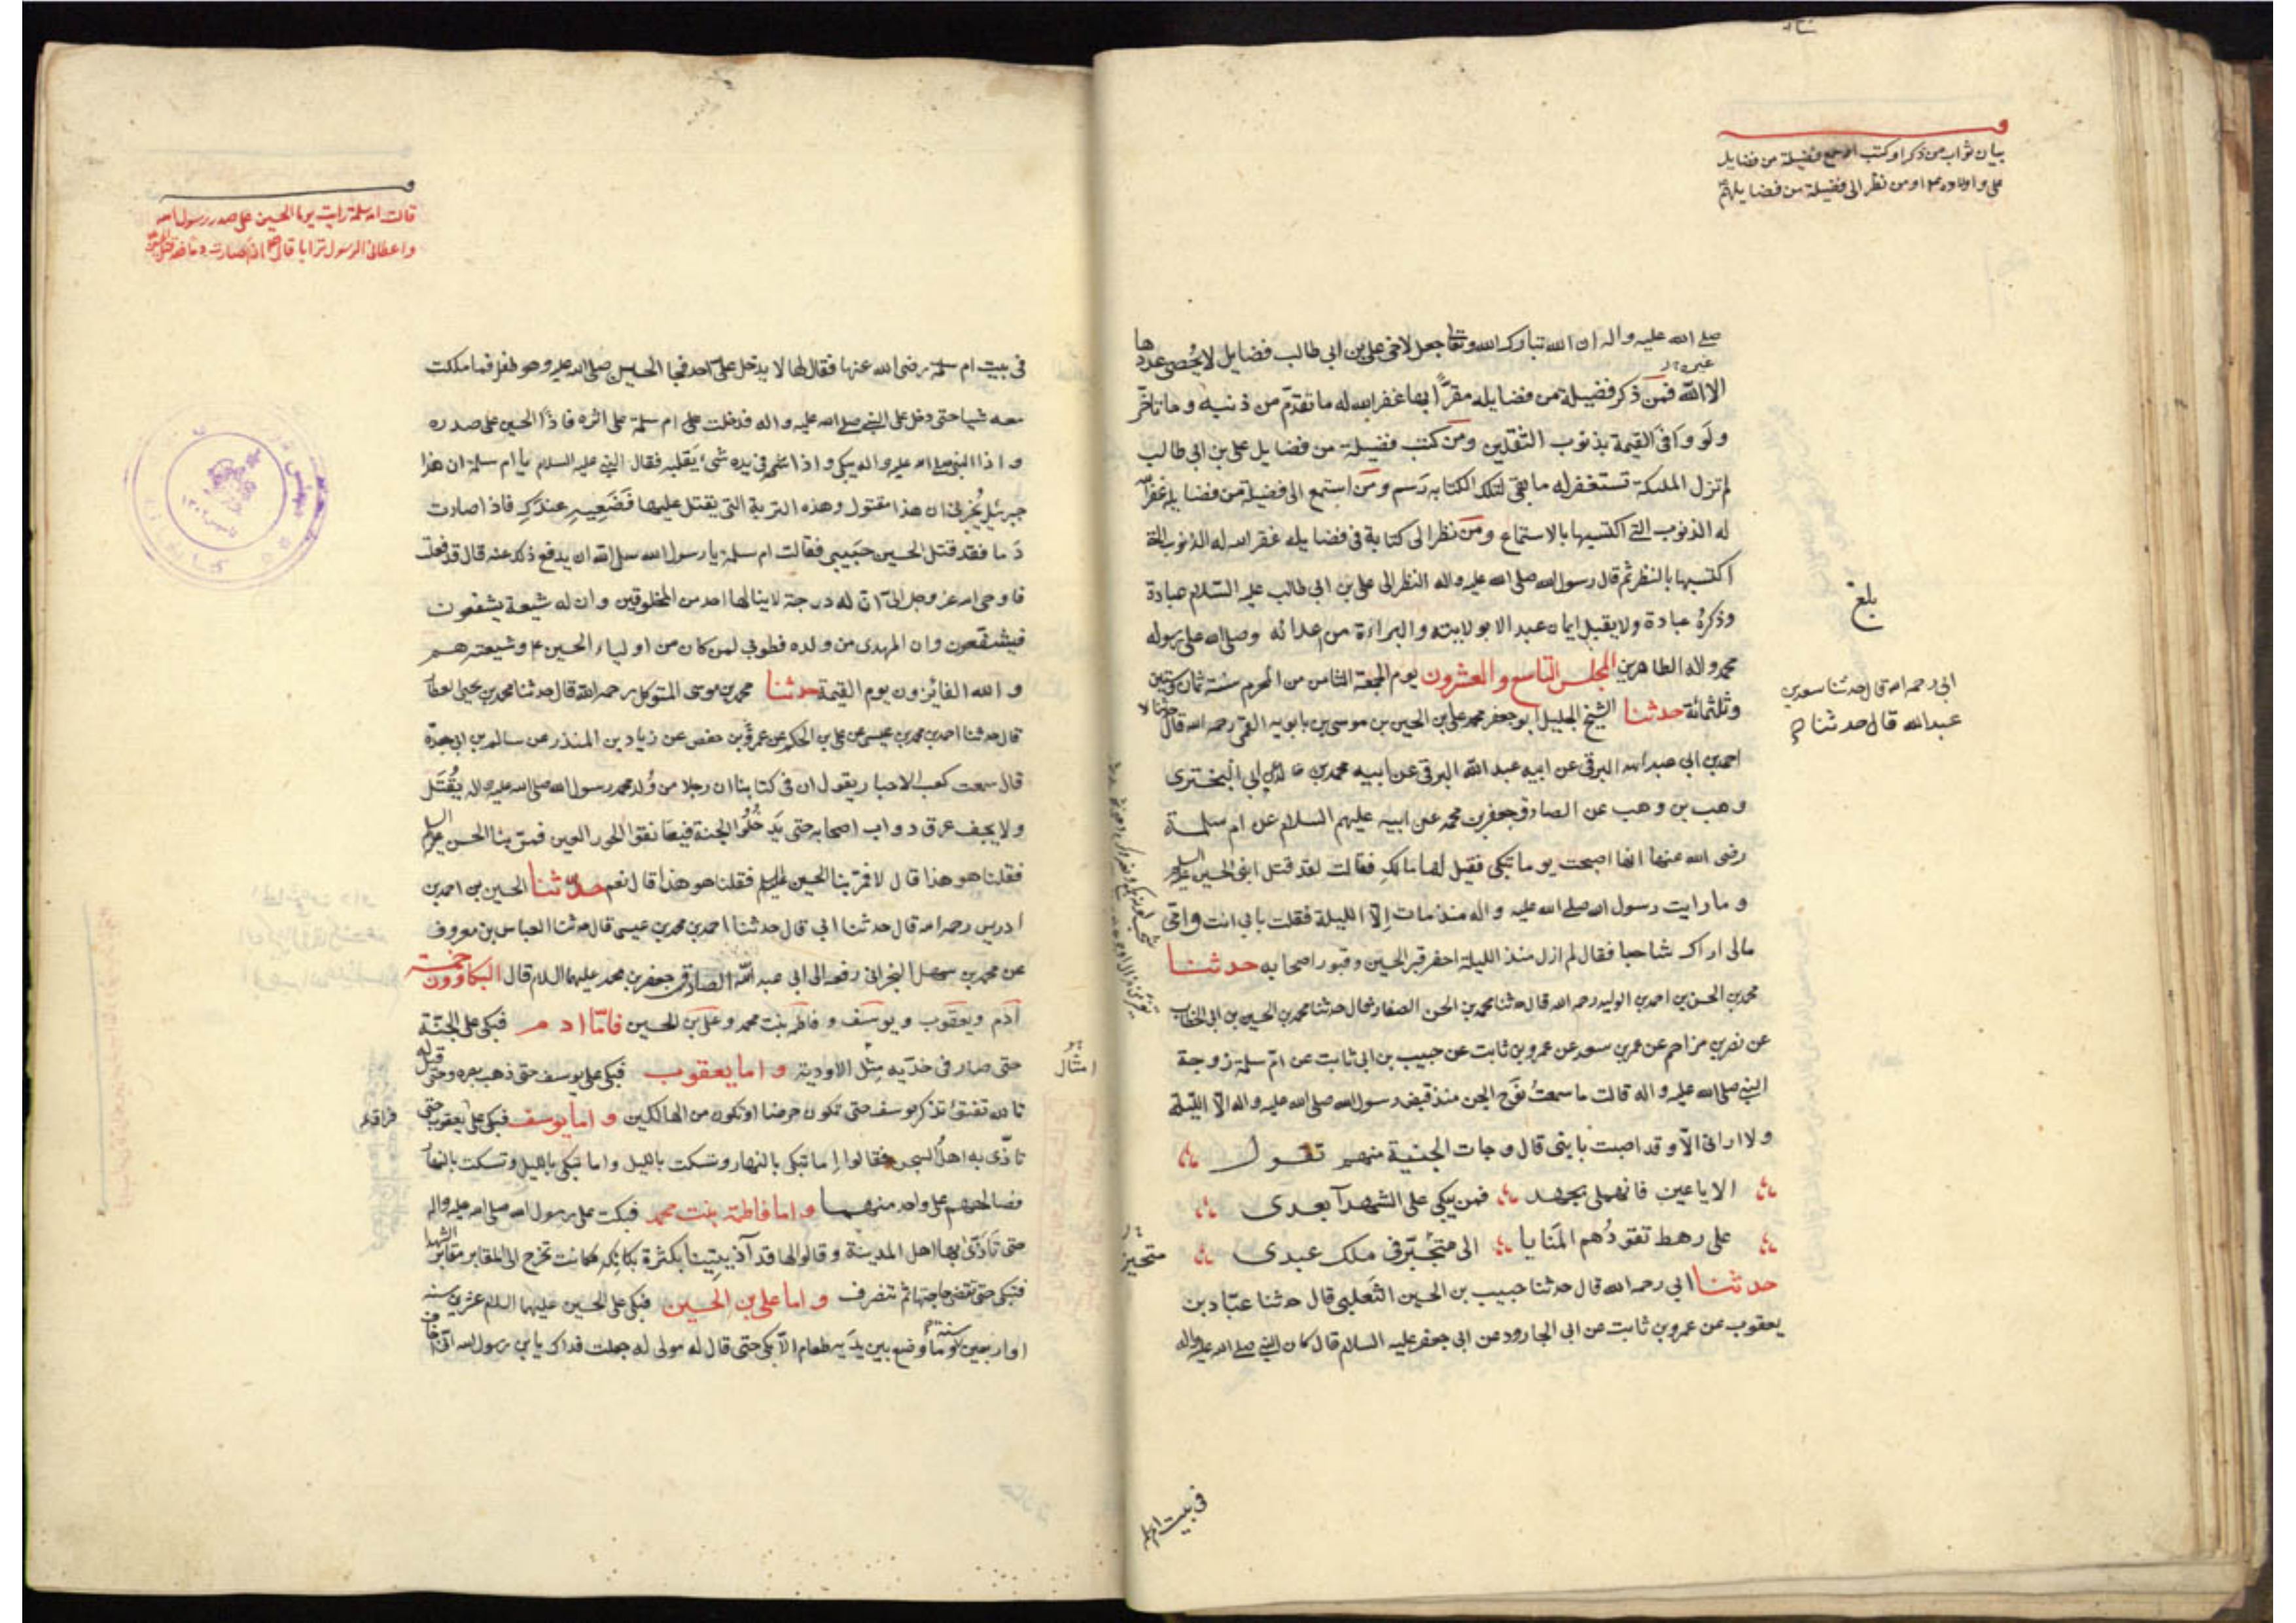 بيان ثواب من ذكر او كتب او سمع فضيلة من فضايل
علي و اولاده ع او من نظر الى فضيلة من فضايلهم
صلے الله عليه واله ان الله تبارك الله وتعا جعل لاخي علي بن ابي طالب فضايل لا يُحصي عددها
غيره
الا الله فمن ذكر فضيلة من فضايله مقرًّا بها غفر الله له ما تقدم من ذنبه وما تاخر
ولو وافى القيمة بذنوب الثقلين ومن كتب فضيلة من فضايل علي بن ابي طالب
لم تزل الملئكة تستغفر له ما بقي لتلك الكتابه رسم ومن استمع الى فضيلة من فضايله غفر الله
له الذنوب التي اكتسبها بالاستماع ومن نظر الى كتابة في فضايله غفر الله له الذنوب التي
اكتسبها بالنظر ثم قال رسول الله صلى الله عليه واله النظر الى علي بن ابي طالب عليه السلام عبادة
وذكره عبادة ولا يقبل ايمان عبد الا بولايته والبراءة من اعدائه وصلى الله على رسوله
محمد واله الطاهرين المجلس التاسع والعشرون يوم الجمعة الثامن من المحرم سنة ثمان وستين
وثلثمائة حدثنا الشيخ الجليل ابو جعفر محمد بن علي بن الحسين بن موسى بن بابويه القمي رحمه الله قال حدثنا
ابي رحمه الله قال حدثنا سعد بن
عبد الله قال حدثنا
بلغ
احمد بن ابي عبد الله البرقي عن ابيه عبد الله البرقي عن ابيه محمد بن خالد عن ابي البختري
وهب بن وهب عن الصادق جعفر بن محمد عن ابيه عليهم السلام عن ام سلمة
رضى الله عنها انها اصبحت يوما تبكي فقيل لها مالكِ فقالت لقد قتل ابني الحسين عليه السلم
وما رايت رسول الله صلى الله عليه واله منذ مات الّا الليلة فقلت بابي انت وامي
مالي اراك شاحبا فقال لم ازل منذ الليلة احفر قبر الحسين وقبور اصحابه حدثنا
محمد بن الحسن بن احمد بن الوليد رحمه الله قال حدثنا محمد بن الحسن الصفار قال حدثنا محمد بن الحسين بن ابي الخطاب
عن نصر بن مزاحم عن عمر بن سعد عن عمرو بن ثابت عن حبيب بن ابي ثابت عن امّ سلمة زوجة
النبي صلى الله عليه واله قالت ما سمعتُ نَوح الجن منذ قبض رسول الله صلى الله عليه واله الّا الليلة
ولا اراني الّا وقد اصبت بابني قال وجات الجنية منهم تقول
الا يا عين فانهملي بجهد فمن يبكي على الشهدآ بعدي
على رهط تقودُهم المَنايا الى متجبّر في ملك عبدي
متحيز
حدثنا ابي رحمه الله قال حدثنا حبيب بن الحسين الثَعلبي قال حدثنا عبّاد بن
يعقوب عن عمرو بن ثابت عن ابي الجارود عن ابي جعفر عليه السلام قال كان النبي صلے الله عليه واله
في بيت ام سلمة
قالت ام سلمة رايت يوما الحسين على صدر رسول الله
واعطاني الرسول ترابا قال اذا صارت دما فقد قتل الحسين
في بيت ام سلمة رضى الله عنها فقال لها لا يدخل عليّ احد فجا الحسين صلى الله عليه وهو طفل فما ملكت
معه شيا حتى دخل على النبي صلے الله عليه واله فدخلت عليه ام سلمة على اثره فاذا الحسين على صدره
واذا النبي صلے الله عليه واله يبكي واذا في يده شئ يقلبه فقال النبي عليه السلام يا ام سلمة ان هذا
جبرئيل يُخبرني ان هذا مقتول وهذه التربة التي يقتل عليها فَضَعِيهِ عندكِ فاذا صارت
دَما فقد قتل الحسين حَبيبي فقالت ام سلمة يا رسول الله سل الله ان يدفع ذلك عنه قال قد فعلت
فاوحى الله عز وجل الىّ انّ له درجة لا ينالها احد من المخلوقين وان له شيعة يشفعون
فيشفعون وان المهدي من ولده فطوبي لمن كان من اولياء الحسين ع وشيعته هم
والله الفائزون يوم القيمة حدثنا محمد بن موسى المتوكل رحمه الله قال حدثنا محمد بن يحيى العطار
قال حدثنا احمد بن محمد بن عيسى عن علي بن الحكم عن عمرو بن حفص عن زياد بن المنذر عن سالم بن ابي جعدة
قال سمعت كعب الاحبار يقول ان في كتابنا ان رجلا من وُلد محمد رسول الله صلى الله عليه واله يُقتَل
ولا يجف عرق دواب اصحابه حتى يَدخُلُوا الجنة فيعانقوا الحور العين فمرّ بنا الحسن عليه السلم
فقلنا هو هذا قال لا فمرّ بنا الحسين عليه السلم فقلنا هو هذا قال نعم حدّثنا الحسين بن احمد بن
ادريس رحمه الله قال حدثنا ابي قال حدثنا احمد بن محمد بن عيسى قال حدثنا العباس بن معروف
عن محمد بن سهل البحراني رفعه الى ابي عبد الله الصادق جعفر بن محمد عليهما السلام قال البكاؤون خمسة
آدم ويعقوب ويوسف وفاطمة بنت محمد وعلي بن الحسين فامّا ادم فبكي على الجنّة
حتى صار في خدّيه مِثل الاودية واما يعقوب فبكي على يوسف حتى ذهب بصره وحتى قيل له
امثال
تالله تفتؤ تذكر يوسف حتى تكون حرضا او تكون من الهالكين واما يوسف فبكي على يعقوب حتى
فراق
تاذّى به اهل السجن فقالوا إما تبكي بالنهار وتسكت بالليل واما تبكي بالليل وتسكت بالنهار
فصالحهم على واحد منهما واما فاطمة بنت محمد فبكت على رسول الله صلى الله عليه واله
حتى تَاذّى بها اهل المدينة وقالوا لها قد آذيتينا بكثرة بكائكِ فكانت تخرج الى المقابر مقابر الشهدا
فتبكي حتى تقضي حاجتها ثم تنصرف واما علي بن الحسين فبكي على الحسين عليهما السلام عشرين سنه
او اربعين سنة وما وُضع بين يدَيه طعام الّا بكي حتى قال له مولى له جعلت فداك يا بن رسول الله انّي اخاف